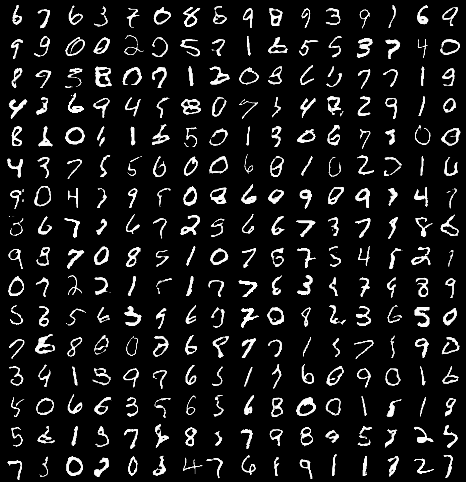 6 7 6 3 7 0 8 5 9 8 9 3 9 1 6 9
9 9 0 0 2 0 5 7 1 6 5 5 3 7 4 0
8 9 3 8 0 7 1 2 0 8 6 0 7 7 1 9
4 3 6 9 4 5 8 0 7 5 4 8 2 9 1 0
8 1 0 6 1 6 5 0 1 3 0 6 7 3 0 0
4 3 7 5 5 6 0 0 6 8 1 0 2 7 1 6
9 0 4 2 9 5 0 8 6 0 9 8 9 3 4 7
8 6 7 2 6 7 2 5 6 6 7 3 7 9 8 6
9 8 7 0 8 5 1 0 7 8 7 5 4 5 2 1
0 7 2 2 1 5 1 7 7 6 3 8 7 9 8 9
5 3 5 6 3 9 6 9 7 0 8 2 3 6 5 0
7 6 8 0 0 8 6 8 7 7 1 5 7 5 9 0
3 9 1 3 9 9 6 5 1 7 6 0 9 0 1 6
5 0 6 6 3 5 6 5 6 8 0 0 1 8 1 9
5 6 1 3 7 8 8 3 7 9 8 9 5 3 2 5
7 3 0 2 0 3 4 7 6 8 9 1 1 8 2 7